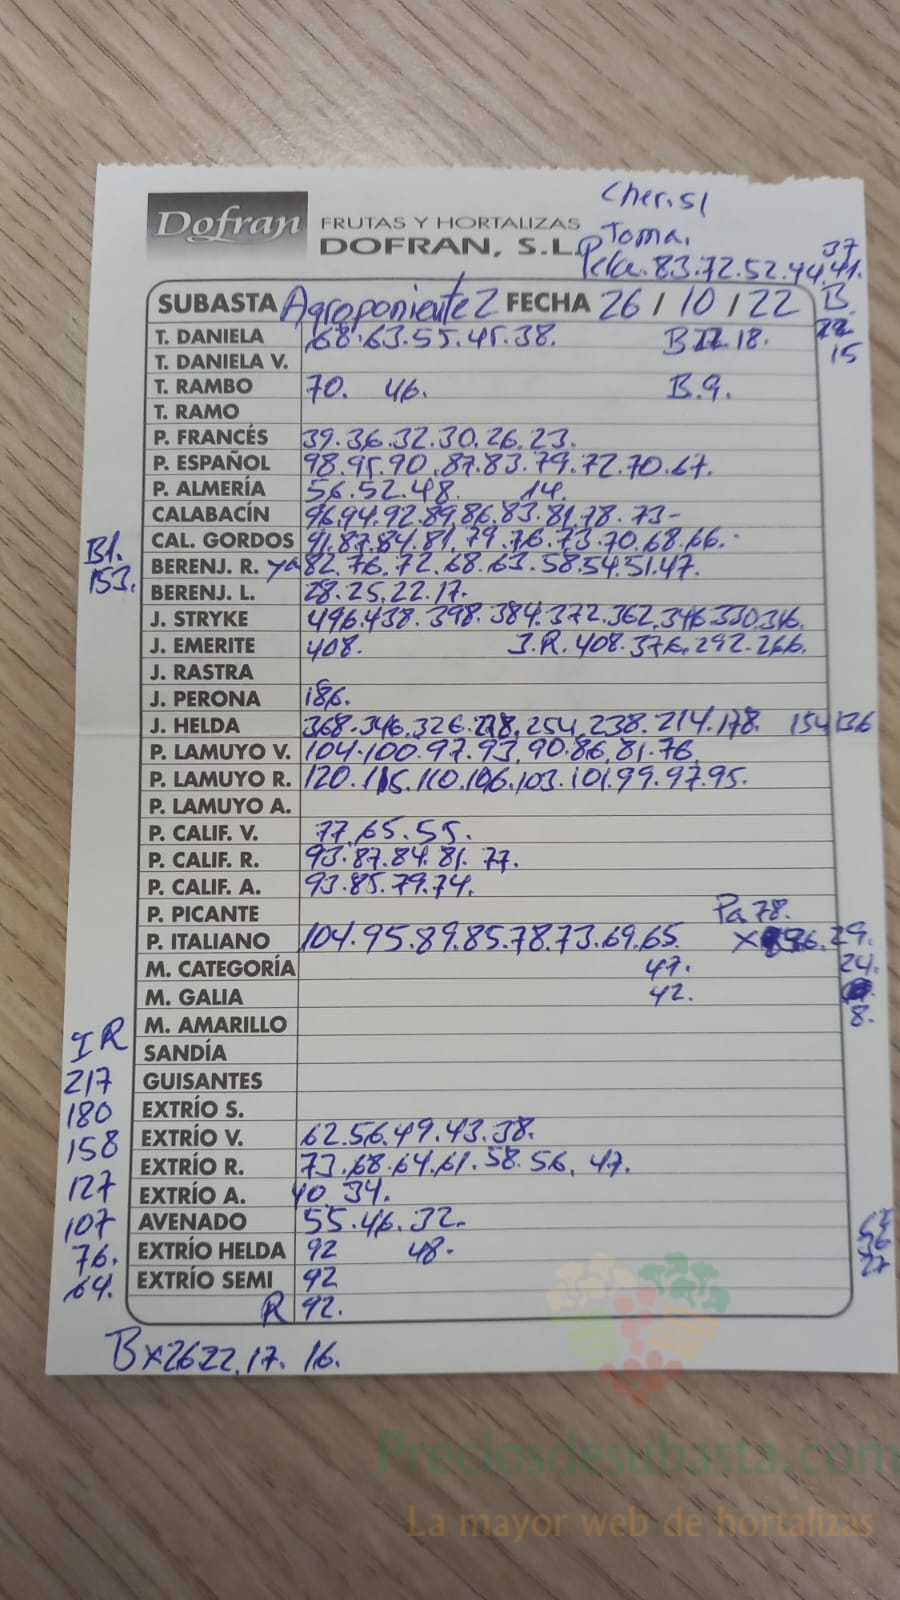 Cher.51
Dofran FRUTAS Y HORTALIZAS
DOFRAN, S.L. Toma.
37
Pera.83.72.52.44.41.
SUBASTA Agroponiente 2 FECHA 26 / 10 / 22 B.
T. DANIELA 68.63.55.45.38. B 18. 22
T. DANIELA V. 15
T. RAMBO 70. 46. B.9.
T. RAMO
P. FRANCÉS 39.36.32.30.26.23.
P. ESPAÑOL 98.95.90.87.83.79.72.70.67.
P. ALMERÍA 56.52.48. 14.
CALABACÍN 96.94.92.89.86.83.81.78.73-
B1. CAL. GORDOS 91.87.84.81.79.76.73.70.68.66.
153. BERENJ. R. ya 82.76.72.68.63.58.54.51.47.
BERENJ. L. 28.25.22.17.
J. STRYKE 496.438.398.384.372.362.346.330.316.
J. EMERITE 408. J.R.408.376.292.266.
J. RASTRA
J. PERONA 186.
J. HELDA 368.346.326. 254.238.214.178. 154.136
P. LAMUYO V. 104.100.97.93.90.86.81.76.
P. LAMUYO R. 120.115.110.106.103.101.99.97.95.
P. LAMUYO A.
P. CALIF. V. 77.65.55.
P. CALIF. R. 93.87.84.81.77.
P. CALIF. A. 93.85.79.74.
P. PICANTE Pa 78.
P. ITALIANO 104.95.89.85.78.73.69.65. 29.
M. CATEGORÍA 47. 24.
M. GALIA 42.
M. AMARILLO 8.
IR SANDÍA
217 GUISANTES
180 EXTRÍO S.
158 EXTRÍO V. 62.56.49.43.38.
EXTRÍO R. 73.68.64.61.58.56.47.
127 EXTRÍO A. 40.34.
107 AVENADO 55.46.32.
76. EXTRÍO HELDA 92 48. 36
64. EXTRÍO SEMI 92 27
R 92.
Bx26 22.17. 16.
Preciosdesubasta.com
La mayor web de hortalizas